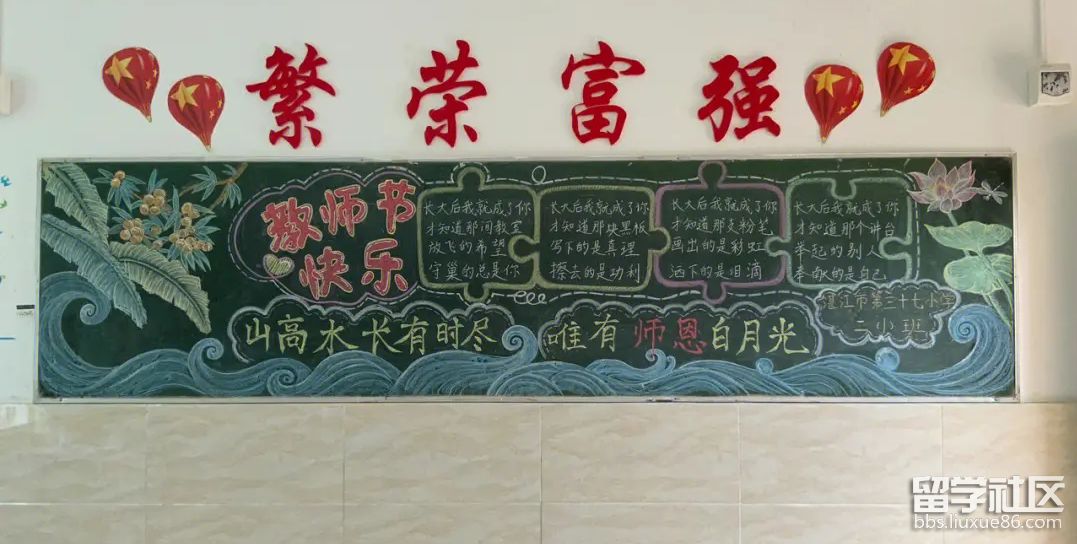 繁荣富强
教师节
快乐
长大后我就成了你
才知道那间教室
放飞的希望
守巢的总是你
长大后我就成了你
才知道那块黑板
写下的是真理
擦去的是功利
长大后我就成了你
才知道那支粉笔
画出的是彩虹
洒下的是泪滴
长大后我就成了你
才知道那个讲台
举起的别人
奉献的是自己
湛江市第三十七小学
二小班
山高水长有时尽
唯有师恩白月光
留学社区
bbs.liuxue86.com